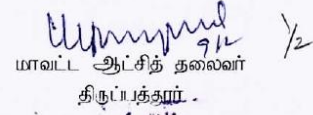 9/12 1/2
மாவட்ட ஆட்சித் தலைவர்
திருப்பத்தூர்.